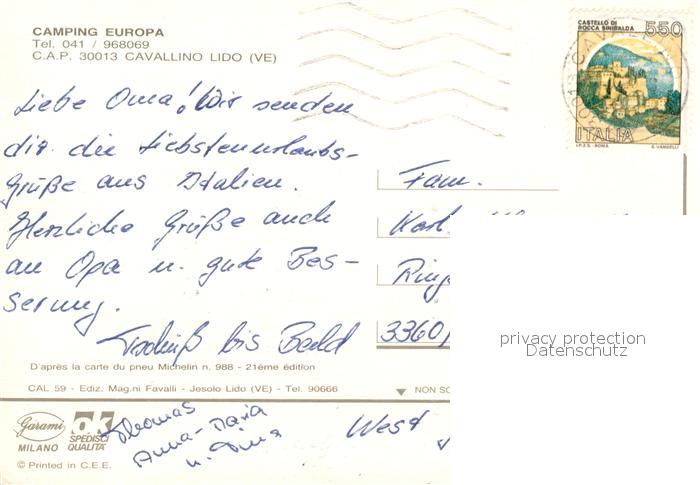 CAMPING EUROPA
Tel. 041 / 968069
C.A.P. 30013 CAVALLINO LIDO (VE)
CASTELLO DI
ROCCA SINIBALDA
550
ITALIA
I.P.Z.S. - ROMA E. VANGELLI
Liebe Oma! Wir senden
dir die liebsten Urlaubs-
Grüße aus Italien.
Herzliche Grüße auch
an Opa u. gute Bes-
serung.
Tschüß bis Bald
Thomas
Anna-Maria
u.
Fam.
Karl
Ring
3360
West
D'après la carte du pneu Michelin n. 988 - 21ème édition
CAL 59 - Ediz. Mag.ni Favalli - Jesolo Lido (VE) - Tel. 90666
NON SC
Garami
MILANO
ok
SPEDISCI
QUALITÀ
© Printed in C.E.E.
privacy protection
Datenschutz